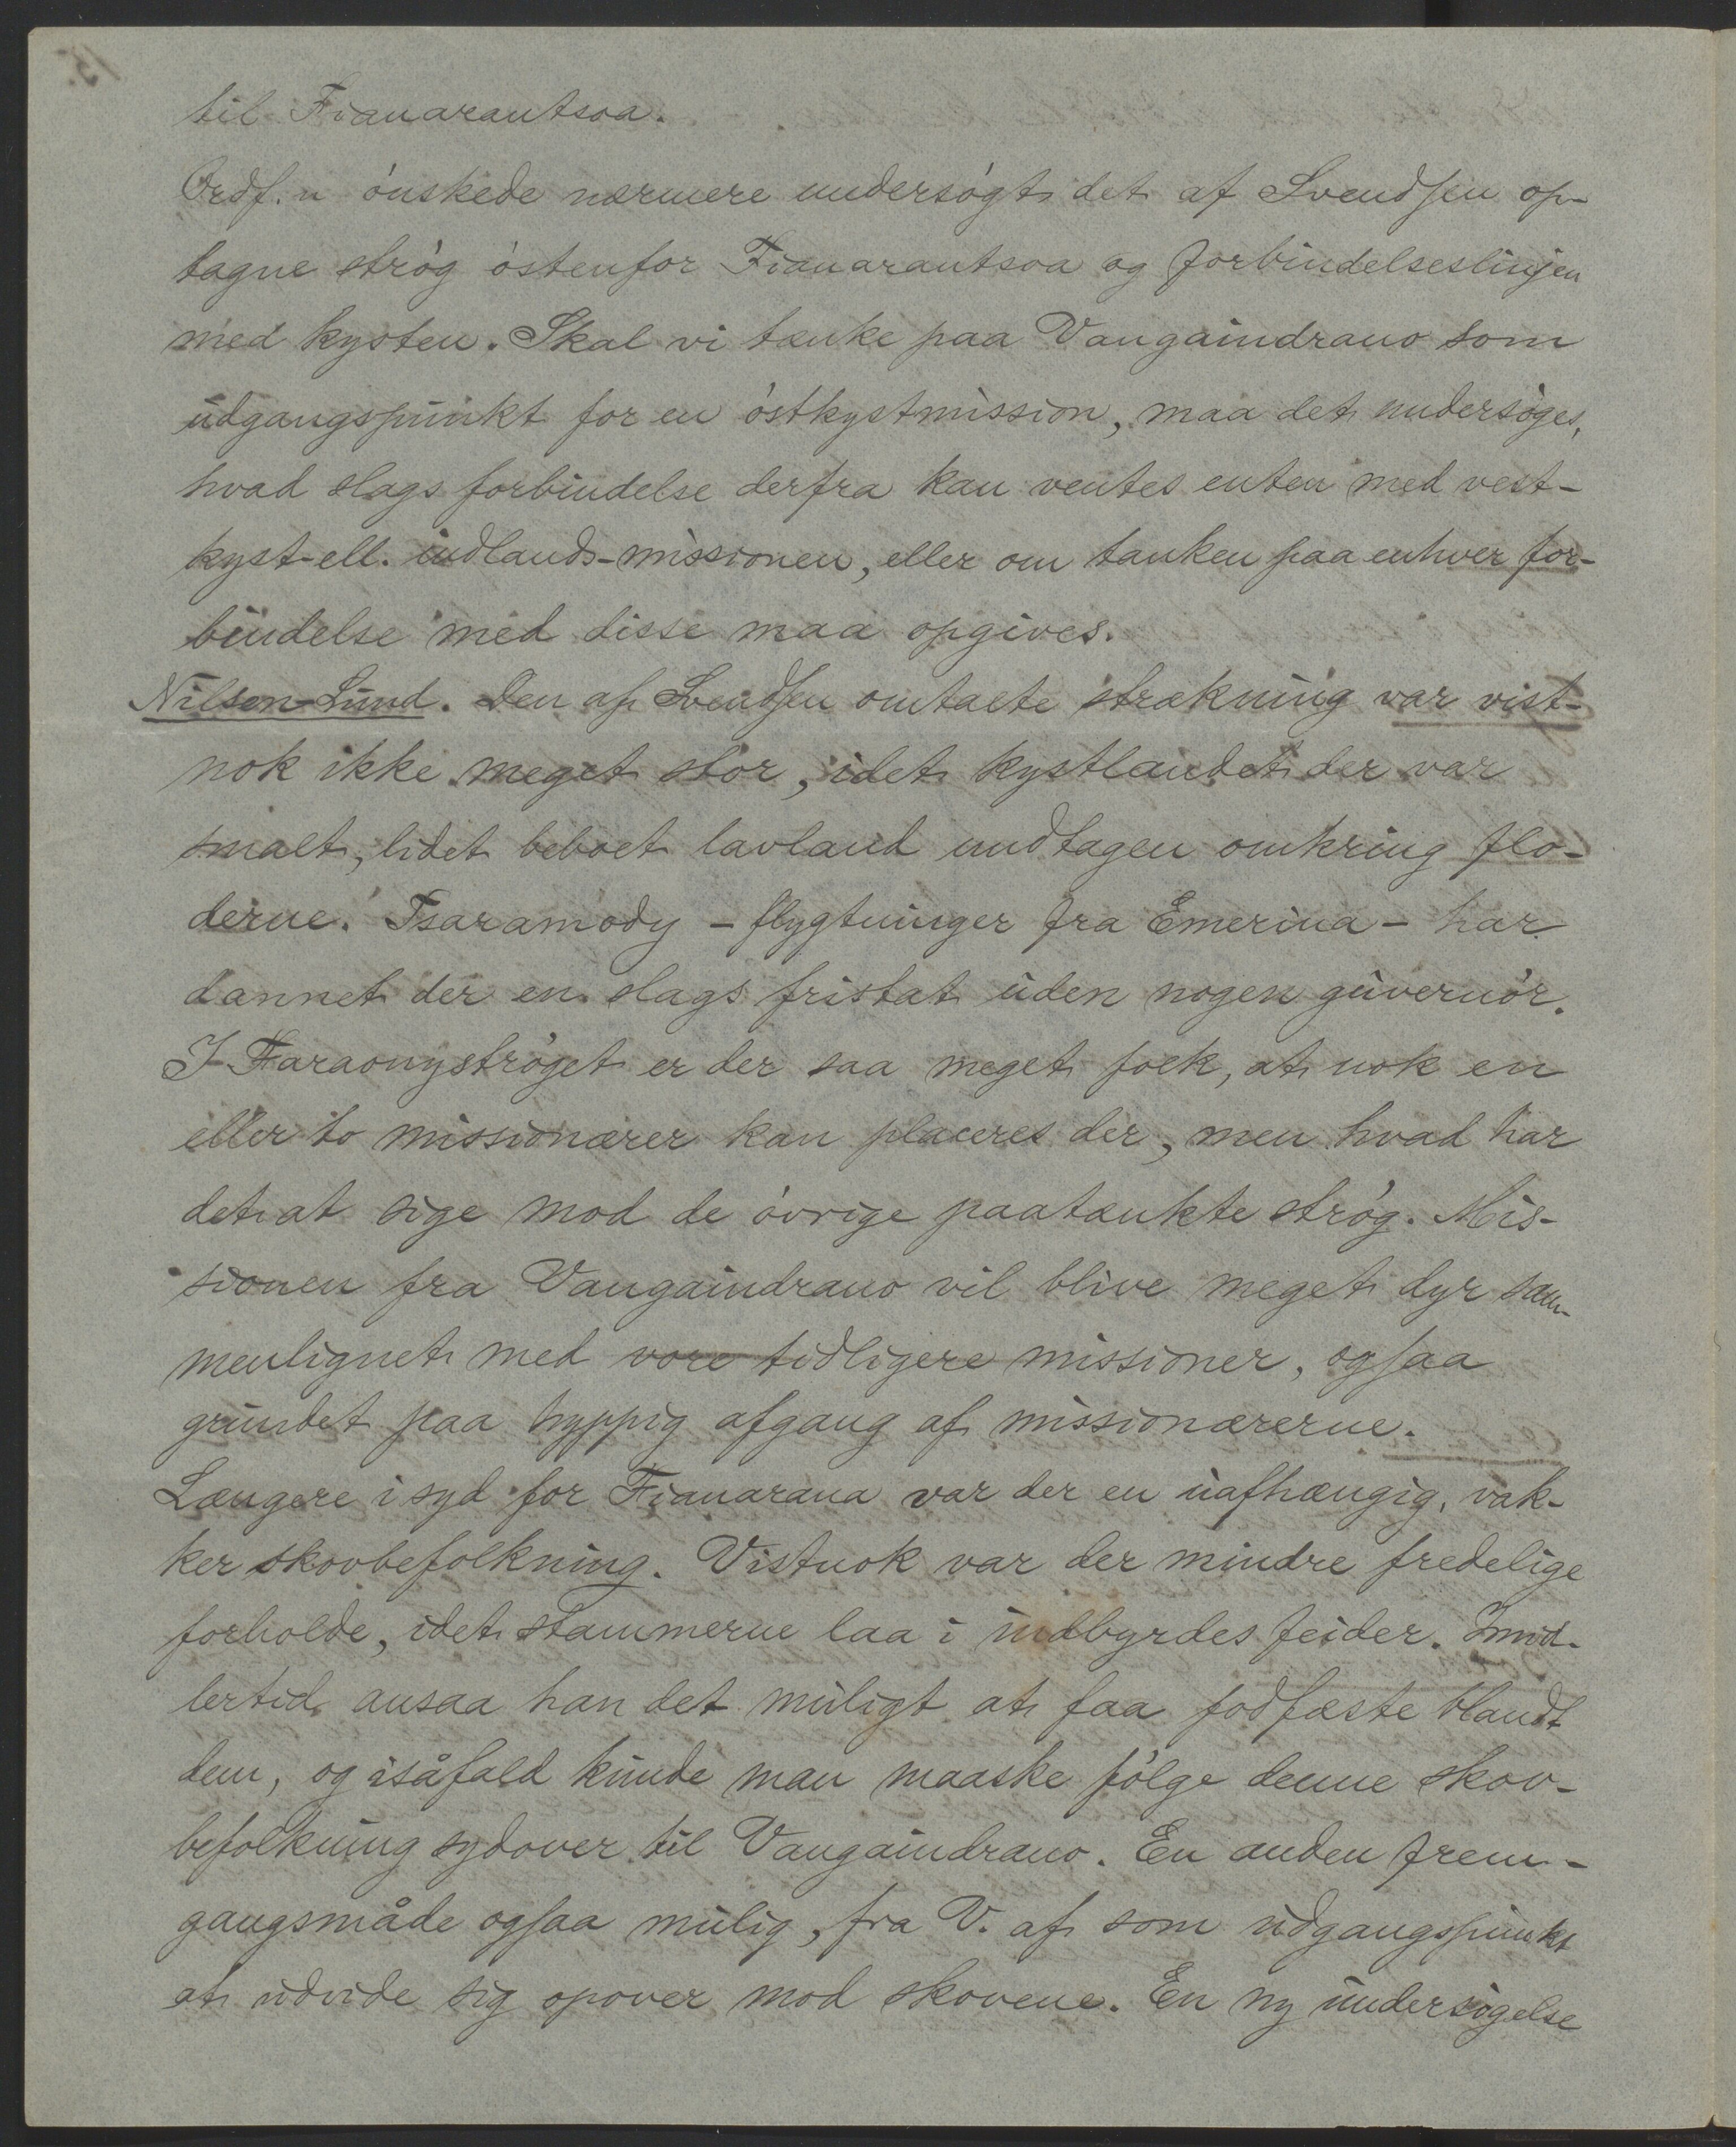 til Fianarantsoa.
Ordf.n ónskede nærmere undersógt det af Svendsen op-
tagne stróg óstenfor Fianarantsoa og forbindelseslinjen
med kysten. Skal vi tænke paa Vangaindrano som
udgangspunkt for en óstkystmission, maa det undersóges,
hvad slags forbindelse derfra kan ventes enten med vest-
kyst- ell. indlands-missionen, eller om tanken paa enhver for-
bindelse med disse maa opgives.
Nilsen-Lund. Den af Svendsen omtalte strækning var vist-
nok ikke meget stor, idet kystlandet der var
smalt, lidet beboet lavland undtagen omkring flo-
derne. Tsaramody - flygtninger fra Emerina - har
dannet der en slags fristat uden nogen guvernór.
I Faraonystróget er der saa meget folk, at nok en
eller to missionærer kan placeres der, men hvad har
det at sige mod de óvrige paatænkte stróg. Mis-
sionen fra Vangaindrano vil blive meget dyr sam-
menlignet med vore tidligere missioner, ogsaa
grundet paa hyppig afgang af missionærerne.
Længere i syd for Fianarana var der en uafhængig, vak-
ker skovbefolkning. Vistnok var der mindre fredelige
forholde, idet stammerne laa i indbyrdes feider. Imid-
lertid ansaa han det muligt at faa fodfæste blandt
dem, og isåfald kunde man maaske fólge denne skov-
befolkning sydover til Vangaindrano. En anden frem-
gangsmåde ogsaa mulig, fra V. af som udgangspunkt
at udvide sig opover mod skovene. En ny undersógelse